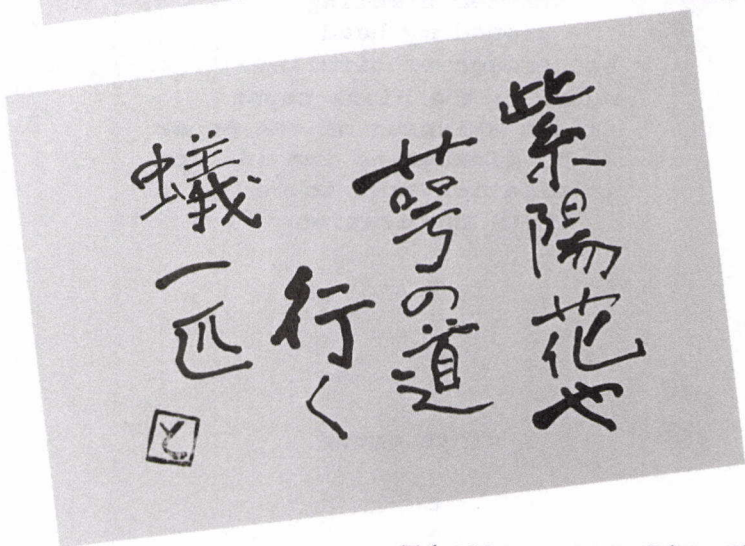 紫陽花や
萼の道
行く
蟻一匹
と